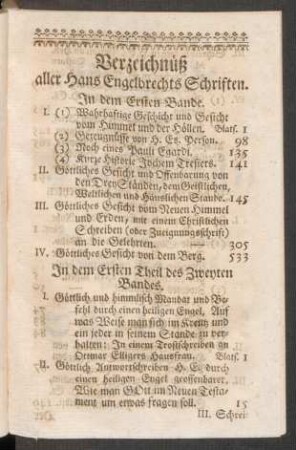 Verzeichnüß
aller Hans Engelbrechts Schriften.
In dem Ersten Bande.
I. (1) Wahrhaftige Geschicht und Gesicht
vom Himmel und der Höllen. Blats. 1
(2) Gezeugnüsse von H. E. Person. 98
(3) Noch eines Pauli Egardi. 135
(4) Kurze Historie Jochem Tresiers. 141
II. Göttliches Gesicht und Offenbarung von
den Drey Ständen, dem Geistlichen,
Weltlichen und Häuslichen Stande. 145
III. Göttliches Gesicht vom Neuen Himmel
und Erden, mit einem Christlichen
Schreiben (oder Zueignungsschrift)
an die Gelehrten. 305
IV. Göttliches Gesicht von dem Berg. 533
In dem Ersten Theil des Zweyten
Bandes.
I. Göttlich und himmlisch Mandat und Be-
fehl durch einen heiligen Engel, Auf
was Weise man sich im Kreuz und
ein jeder in seinem Stande zu ver-
halten: In einem Trostschreiben an
Ottmar Elligers Hausfrau. Blats. 1
II. Göttlich Antwortschreiben H. E. durch
einen heiligen Engel geoffenbaret,
Wie man GOtt im Neuen Testa-
ment um etwas fragen soll. 15
III. Schrei-